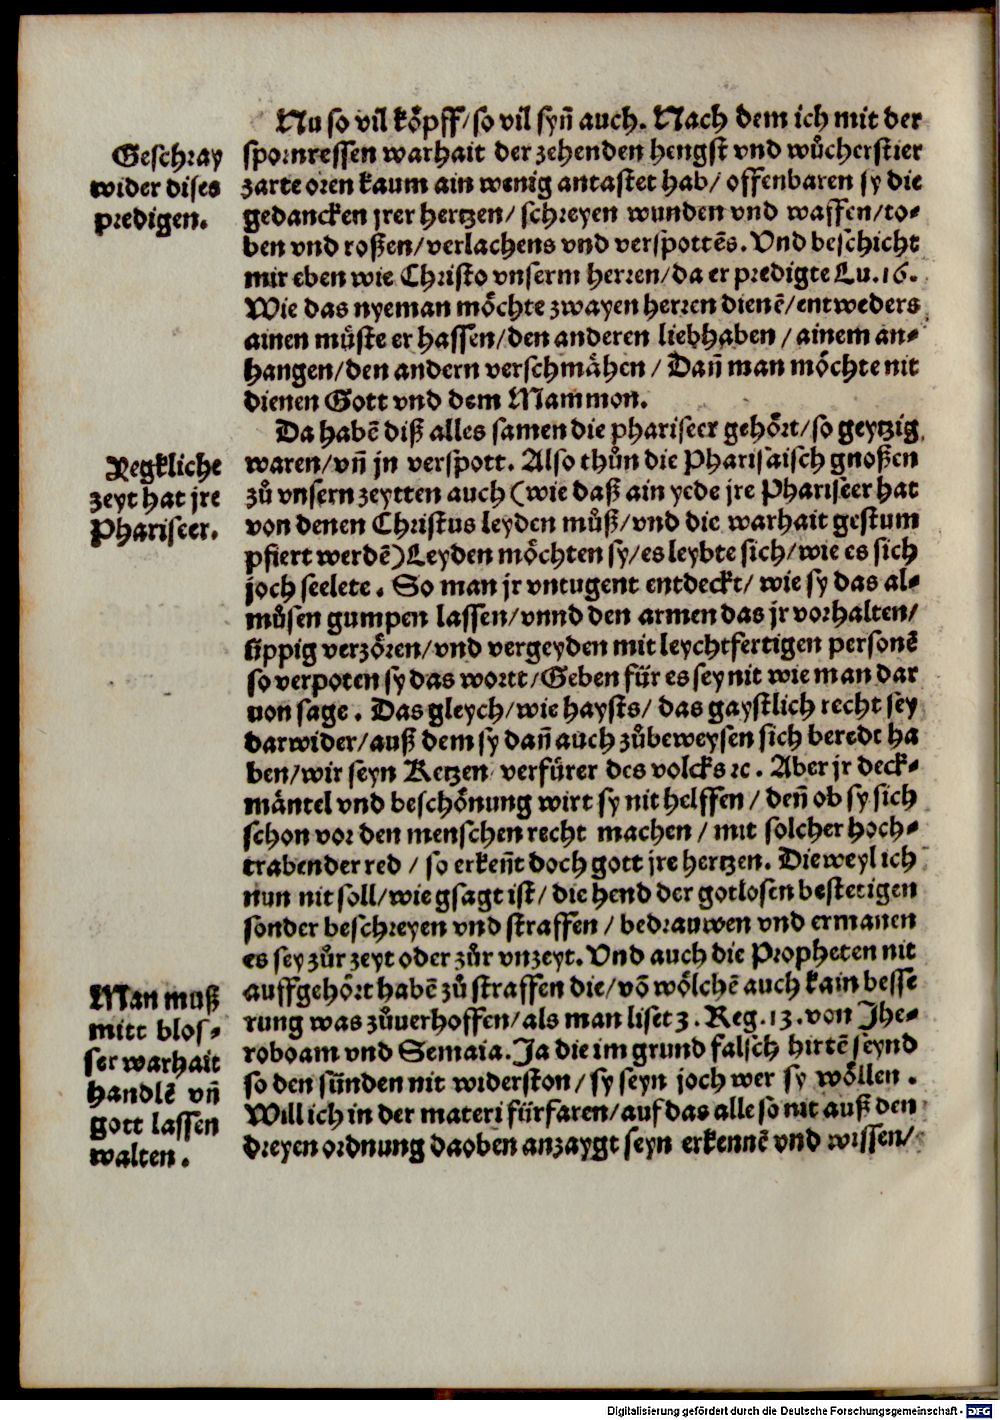 Nu so vil koͤpff/so vil syñ auch. Nach dem ich mit der
Geschray
wider dises
predigen.
spornressen warhait der zehenden hengst vnd wuͤcherstier
zarte oren kaum ain wenig antastet hab/ offenbaren sy die
gedancken jrer hertzen/ schreyen wunden vnd waffen/to⸗
ben vnd roßen/verlachens vnd verspottēs. Vnd beschicht
mir eben wie Christo vnserm herren/da er predigte Lu.16.
Wie das nyeman moͤchte zwayen herren dienē/entweders
ainen muͤste er hassen/den anderen liebhaben/ ainem an⸗
hangen/den andern verschmaͤhen/ Dañ man moͤchte nit
dienen Gott vnd dem Mammon.
Da habē diß alles samen die phariseer gehoͤrt/so geytzig
Regkliche
zeyt hat jre
Phariseer.
waren/vñ jn verspott. Also thuͦn die Pharisaisch gnoßen
zuͦ vnsern zeytten auch (wie daß ain yede jre Phariseer hat
von denen Christus leyden muͤß/vnd die warhait gestum
pfiert werdē)Leyden moͤchten sy/es leybte sich/wie es sich
joch seelete. So man jr vntugent entdeckt/ wie sy das al⸗
muͦsen gumpen lassen/vnnd den armen das jr vorhalten/
üppig verzoͤren/vnd vergeyden mit leychtfertigen personē
so verpoten sy das wortt/Geben für es sey nit wie man dar
von sage. Das gleych/wie haysts/ das gaystlich recht sey
darwider/auß dem sy dañ auch zuͦbeweysen sich beredt ha
ben/wir seyn Ketzen verfürer des volcks ꝛc. Aber jr deck⸗
maͤntel vnd beschoͤnung wirt sy nit helffen/ deñ ob sy sich
schon vor den menschen recht machen/ mit solcher hoch⸗
trabender red/ so erkeñt doch gott jre hertzen. Dieweyl ich
nun nit soll/wie gsagt ist/ die hend der gotlosen bestetigen
sonder beschreyen vnd straffen/ bedrauwen vnd ermanen
es sey zuͦr zeyt oder zuͦr vnzeyt. Vnd auch die Propheten nit
Man muß
mitt blos⸗
ser warhait
handlē vñ
gott lassen
walten.
auffgehoͤrt habē zuͦ straffen die/vō woͤlchē auch kain besse
rung was zuͦuerhoffen/als man liset 3. Reg.13.von Jhe⸗
roboam vnd Semaia. Ja die im grund falsch hirtē seynd
so den sünden nit widerston/ sy seyn joch wer sy woͤllen.
Will ich in der materi fürfaren/auf das alle so nit auß den
dreyen ordnung daoben anzaygt seyn erkennē vnd wissen/
Digitalisierung gefördert durch die Deutsche Forschungsgemeinschaft - DFG